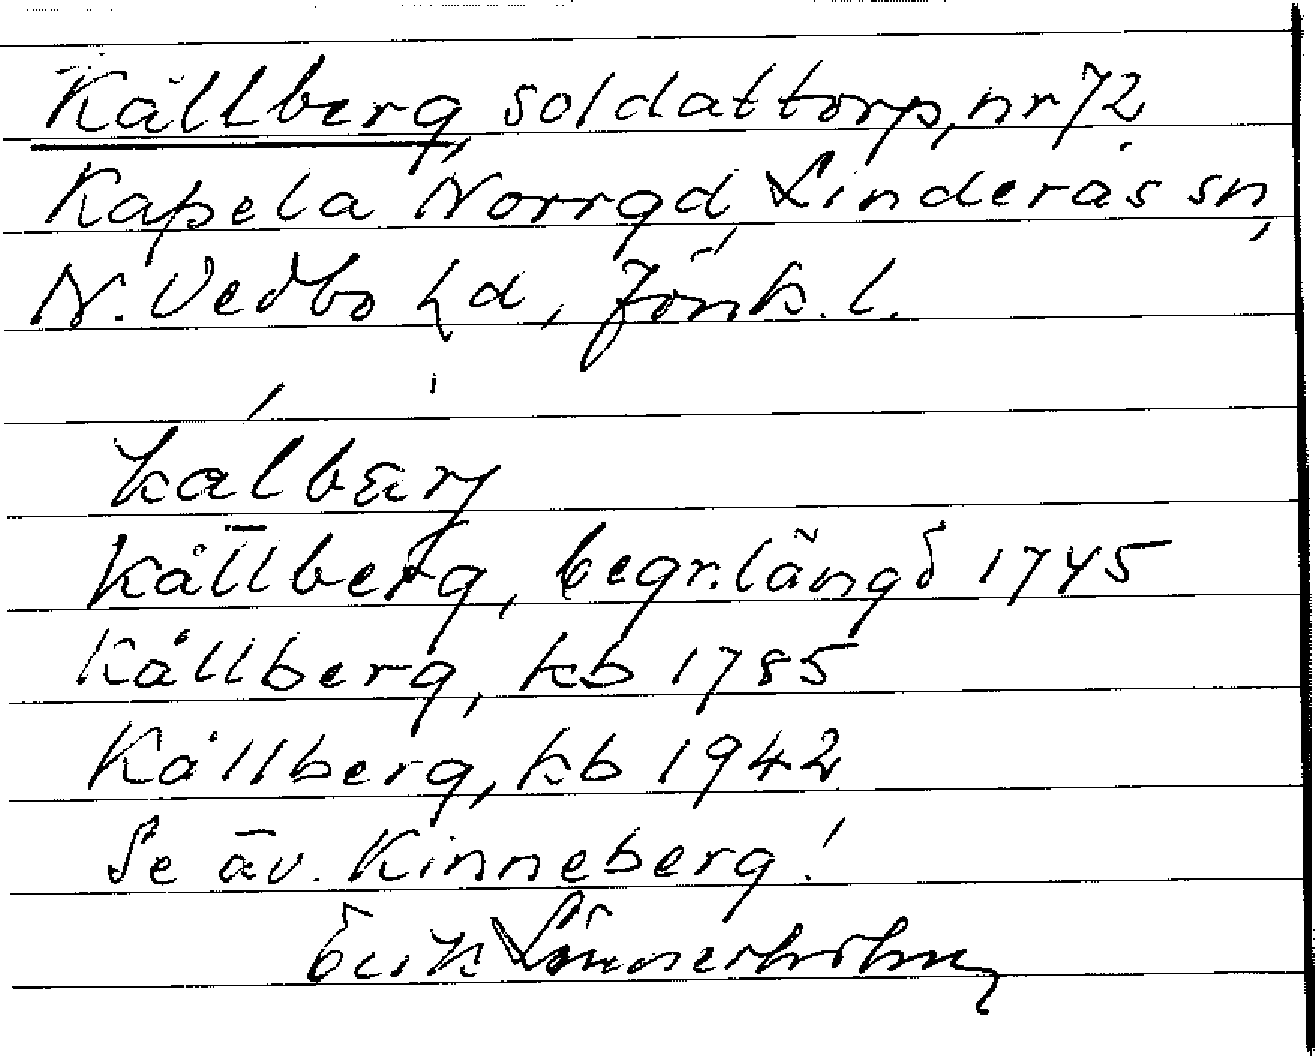 Kållberg, soldattorp, nr 72
Kapela Norrgd, Linderås sn,
N. Vedbo hd, Jönk. l.
kálbærj
Kållberg, begr.längd 1745
Kållberg, kb 1785
Kållberg, kb 1942
Se äv. Kinneberg!
Erik Lönnerholm